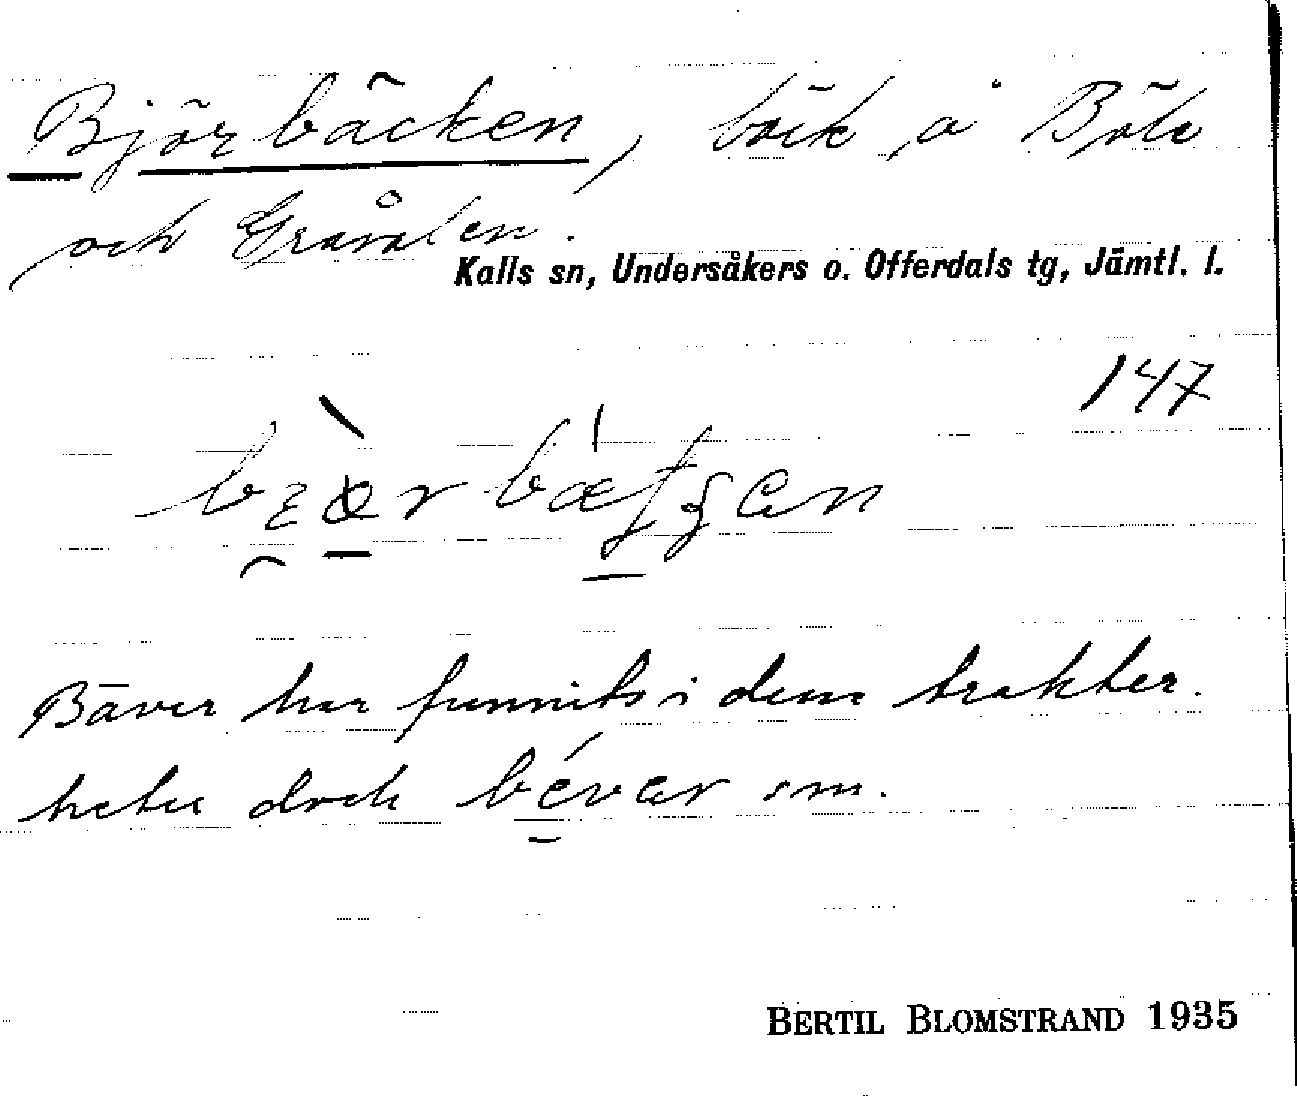 Björbäcken, bäck å Böle
och Grånälen.
Kalls sn, Undersåkers o. Offerdals tg, Jämtl. l.
147
Bäver har funnits i dem trakter.
heter dock bévar sm.
BERTIL BLOMSTRAND 1935